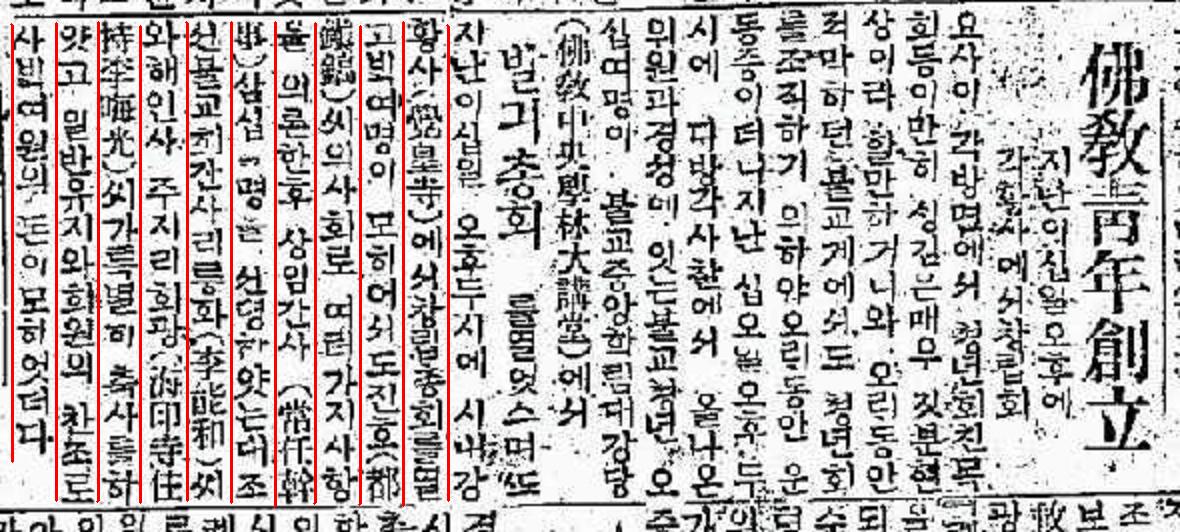 佛敎靑年創立
지난이십일오후에
각황사에셔창립회
요사이 각방면에셔 청년회친목
회등이만히 싱김은매우 깃분현
상이라 할만하거니와 오릭동안
적막하던불교계에셔도 청년회
를조직하기 위하야오릭동안 운
동중이더니지난 십오일오후두
시에 디방각사찬에셔 올나온
위원과경성에 잇는불교청년 오
십여명이 불교중앙학림대강당
(佛敎中央學林大講堂)에셔
발긔총회 를열엇스며또
지난이십일 오후두시에 시내각
황사(覺皇寺)에셔창립총회를열
고빅여명이 모히여셔도진호(都
鎭鎬)씨의사회로 여러가지사항
을 의론한후 상임간사 (常任幹
事)삼십여명을 션뎡하얏는대조
션불교진사리릉화(李能和)씨
와해인사 주지리회광(海印寺住
持李晦光)씨가특별히 축사를하
얏고 일반유지와회원의 찬조로
사빅여원의 돈이모하엿더다